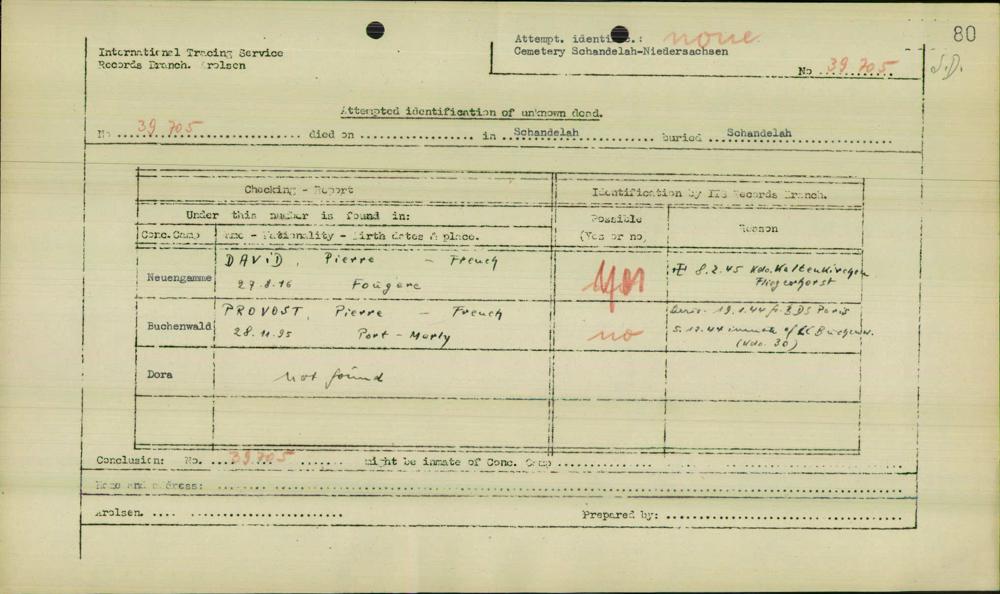 80
Attempt. identific.: none
International Tracing Service
Cemetery Schandelah-Niedersachsen
Records Branch. Arolsen
No 39 705
S.D.
Attempted identification of unknown dead.
No 39 705 died on in Schandelah buried Schandelah
Checking - Report
Identification by ITS Records Branch.
Under this number is found in:
Possible
(Yes or no)
Reason
Conc.Camp
Name - Nationality - Birth dates & place.
Neuengamme
DAVID, Pierre - French
27.8.16 Fougère
Yes
8.2.45 Kdo. Kaltenkirchen
Fliegerhorst
Buchenwald
PROVOST, Pierre - French
28.11.95 Port-Marly
no
19.1.44 fr. BDS Paris
5.12.44 inmate of CC
(Kdo. 30)
Dora
not found
Conclusion: No. 39705 might be inmate of Conc. Camp
Name and address:
Arolsen.
Prepared by: